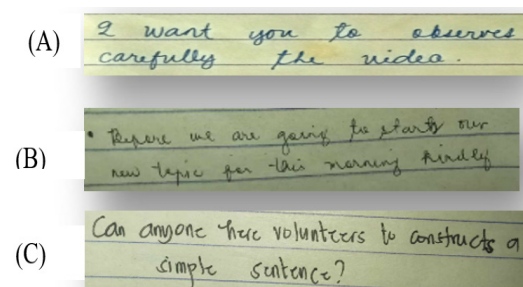 (A)
I want you to observes
carefully the video.
(B)
• Before we are going to starts our
new topic for this morning kindly
(C)
Can anyone here volunteers to constructs a
simple sentence?